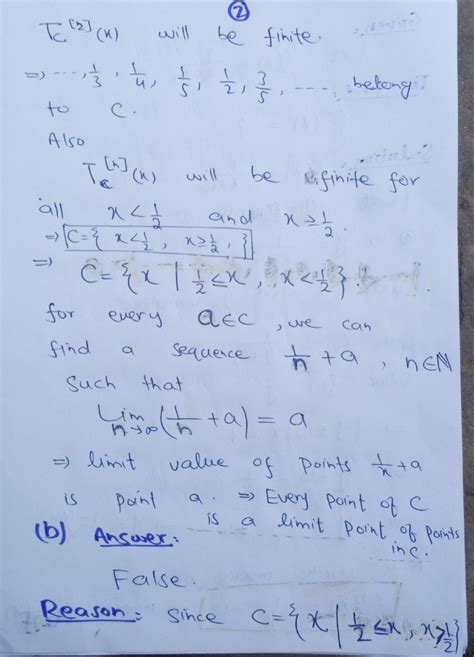 2
T_c^[n](x) will be finite.
⇒ ..., 1/3, 1/4, 1/5, 1/2, 3/5, .... belong
to C.
Also
T_c^[n](x) will be finite for
all x < 1/2 and x ≥ 1/2.
⇒ C = { x < 1/2, x ≥ 1/2, }
⇒ C = { x | 1/2 ≤ x, x < 1/2 }.
for every a ∈ C, we can
find a sequence 1/n + a, n ∈ N
such that
Lim n→∞ (1/n + a) = a
⇒ limit value of points 1/n + a
is point a. ⇒ Every point of C
is a limit point of points
in C.
(b) Answer:
False.
Reason: Since C = { x | 1/2 ≤ x, x ≥ 1/2 }